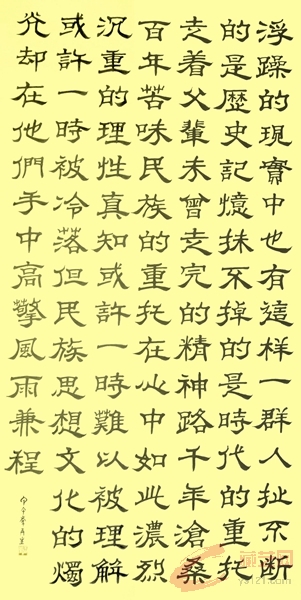 浮躁的現實中也有這樣一群人扯不断
的是歷史記憶抹不掉的是時代的重托
走着父輩未曾走完的精神路千年滄桑
百年苦味民族的重托在心中如此濃烈
沉重的理性真知或許一時難以被理解
或許一時被冷落但民族思想文化的燭
光却在他們手中高擎風雨兼程